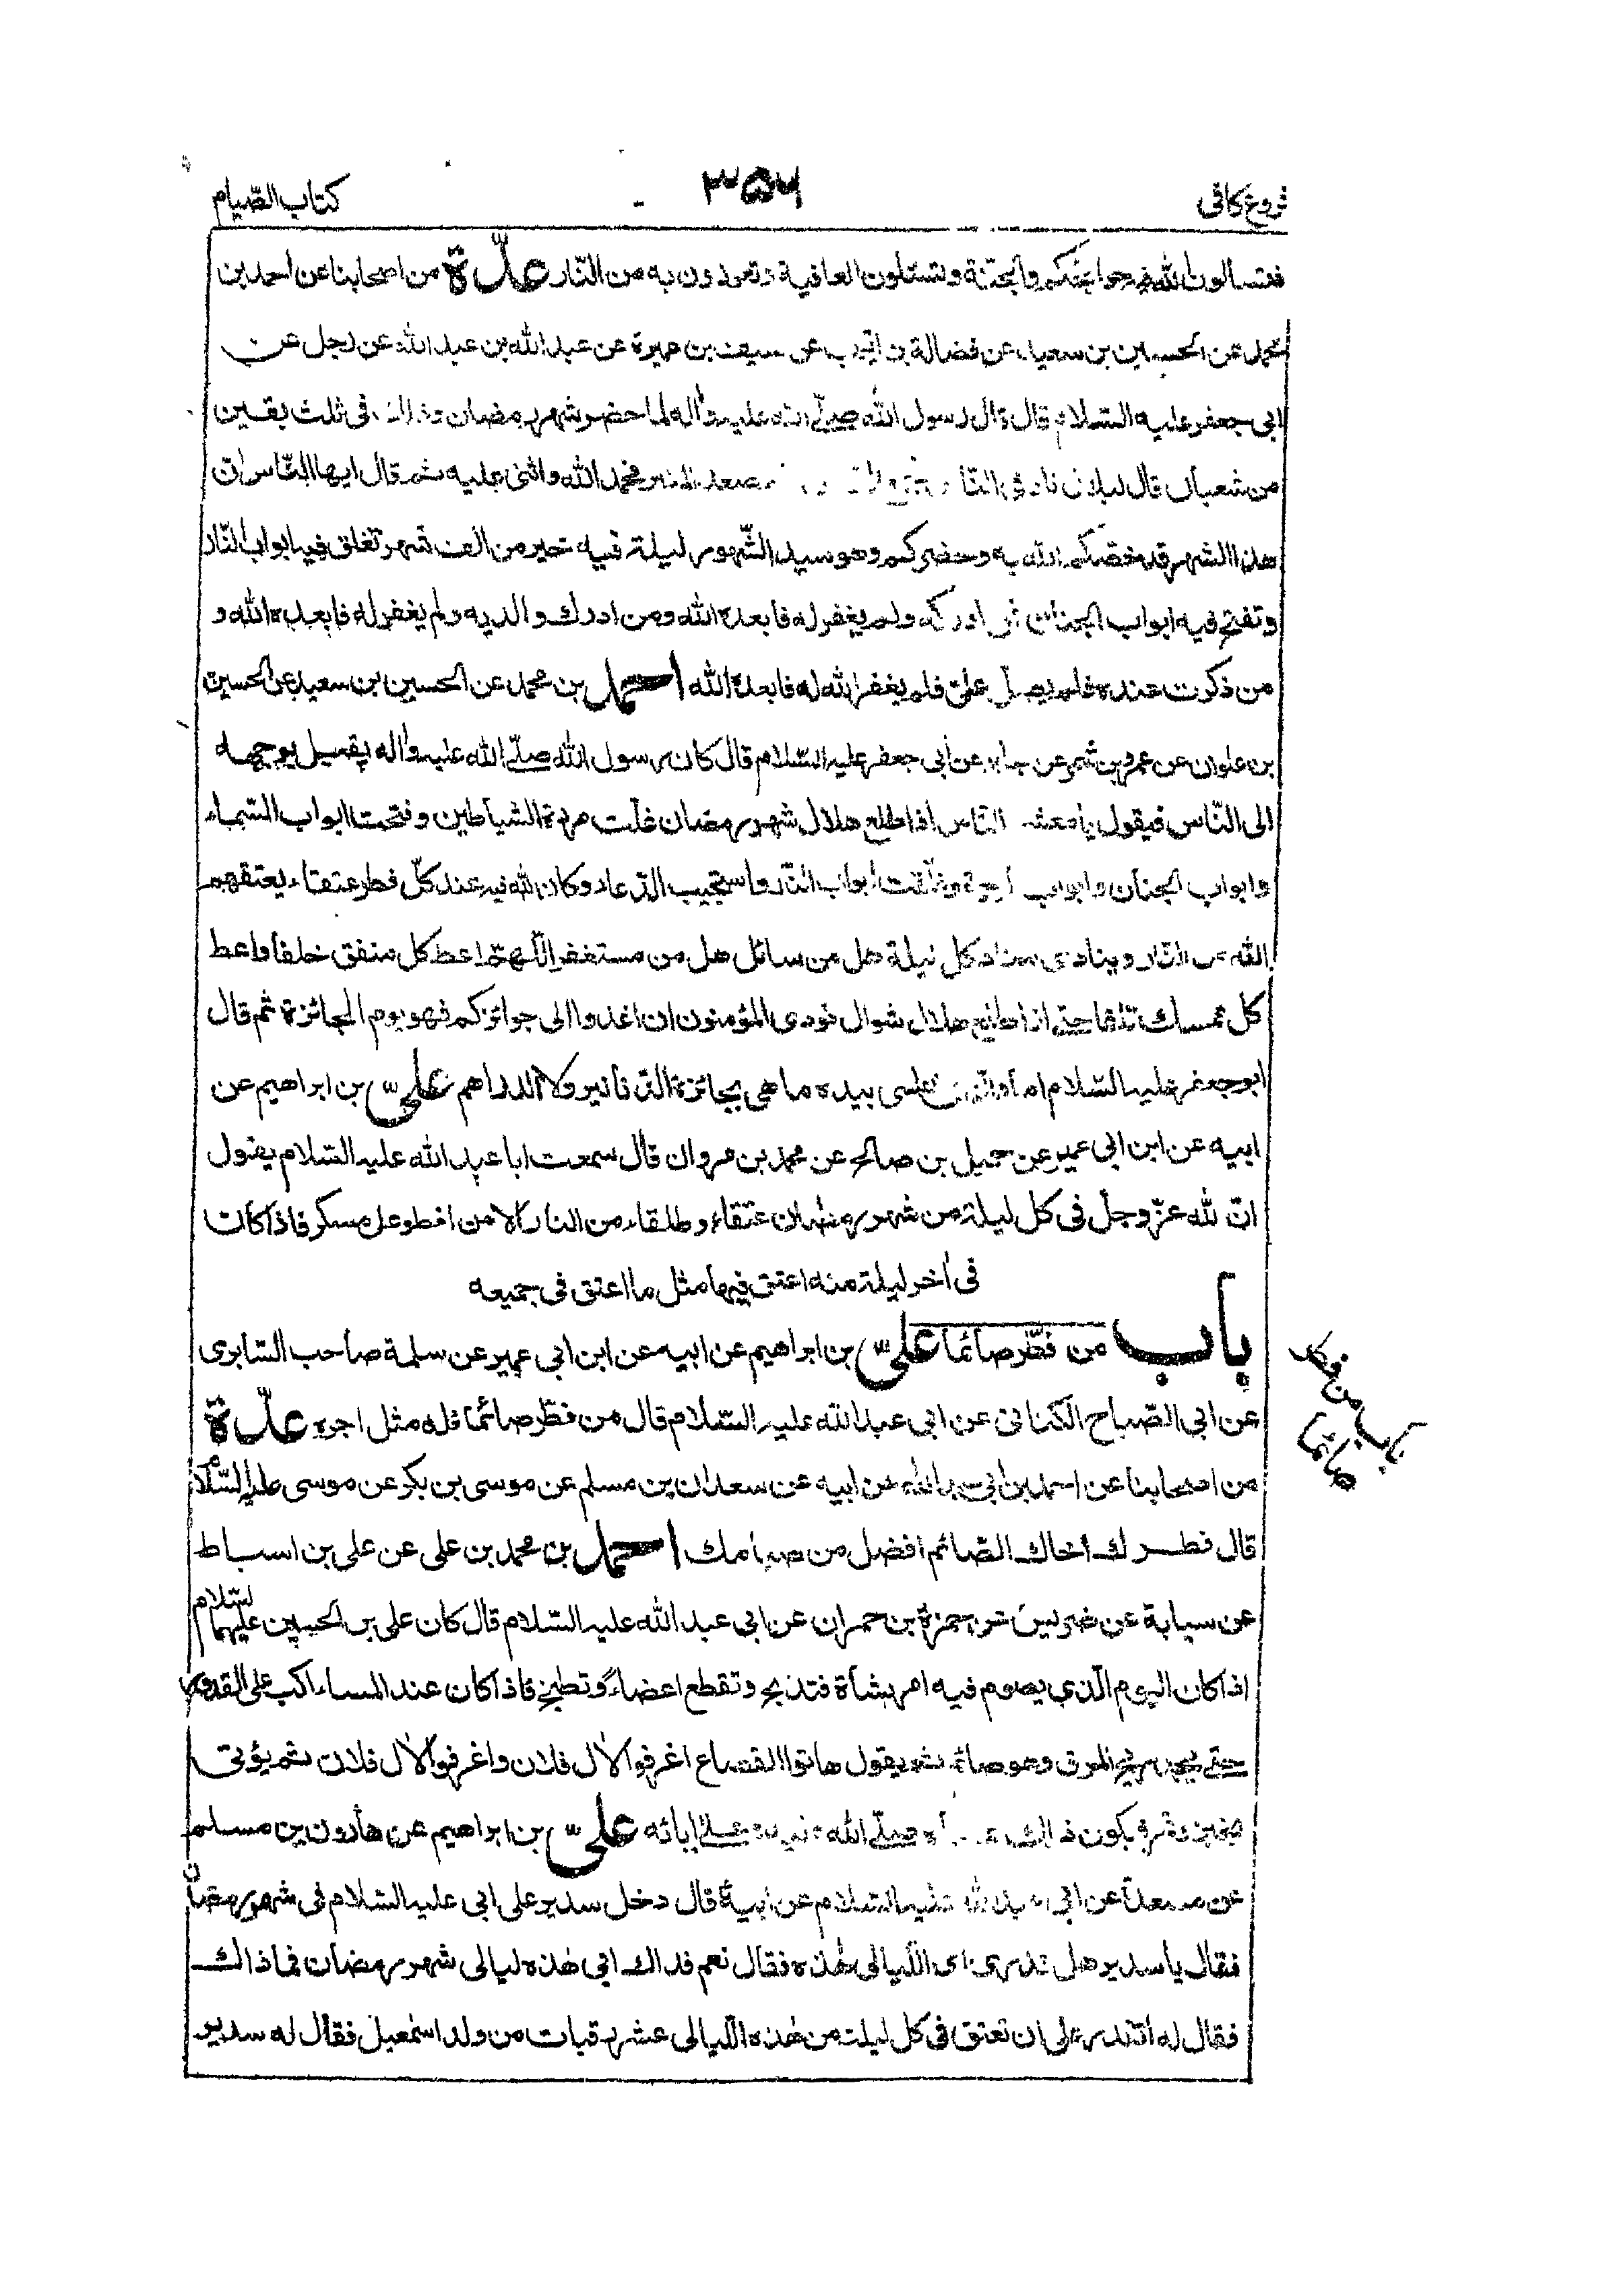 فروع كافى
٣٥٦
كتاب الصّيام
فتسألون الله فيه حوائجكم والجنّة وتسئلون العافية وتعوذون به من النّار عدّة من اصحابنا عن احمد بن
محمد عن الحسين بن سعيد عن فضالة بن ايوب عن سيف بن عميرة عن عبد الله بن عبد الله عن رجل عن
ابى جعفر عليه السّلام قال قال رسول الله صلّى الله عليه واله لما حضر شهر رمضان وذلك فى ثلث بقين
من شعبان قال لبلال ناد فى النّاس صعد المنبر فحمد الله واثنى عليه ثم قال ايها النّاس انّ
هذا الشهر قد خصّكم الله به وحضركم وهو سيد الشّهور ليلة فيه خير من الف شهر تغلق فيه ابواب النّار
وتفتح فيه ابواب الجنان فمن ادركه ولم يغفر له فابعده الله ومن ادرك والديه ولم يغفر له فابعده الله و
من ذكرت عنده فلم يصلّ علىّ فلم يغفر الله له فابعده الله احمد بن محمد عن الحسين بن سعيد عن الحسين
بن علوان عن عمرو بن شمر عن جابر عن أبى جعفر عليه السّلام قال كان رسول الله صلّى الله عليه واله يقبل بوجهه
الى النّاس فيقول يا معشر النّاس اذا طلع هلال شهر رمضان غلّت مردة الشياطين وفتحت ابواب السّماء
وابواب الجنان وابواب الرحمة وغلّقت أبواب النّار واستجيب الدّعاء وكان لله فيه عند كلّ فطر عتقاء يعتقهم
الله من النّار وينادى مناد كل ليلة هل من سائل هل من مستغفر اللّهمّ اعط كل منفق خلفا واعط
كل ممسك تلفا حتى اذا طلع هلال شوال نودى المؤمنون ان اغدوا الى جوائزكم فهو يوم الجائزة ثم قال
ابو جعفر عليه السّلام اما والّذى نفسى بيده ما هى بجائزة الدّنانير ولا الدراهم علىّ بن ابراهيم عن
ابيه عن ابن ابى عمير عن جميل بن صالح عن محمد بن مروان قال سمعت ابا عبد الله عليه السّلام يقول
انّ لله عزّ وجلّ فى كل ليلة من شهر رمضان عتقاء وطلقاء من النار الا من افطر على مسكر فاذا كانت
فى اخر ليلة منه اعتق فيها مثل ما اعتق فى جميعه
باب من فطّر صائما علىّ بن ابراهيم عن ابيه عن ابن ابى عمير عن سلمة صاحب السّابرى
باب من فطر صائما
عن ابى الصّباح الكنانى عن ابى عبد الله عليه السّلام قال من فطّر صائما فله مثل اجره عدّة
من اصحابنا عن احمد بن ابى عبد الله عن ابيه عن سعدان بن مسلم عن موسى بن بكر عن موسى عليه السّلام
قال فطرك اخاك الصّائم افضل من صيامك احمد بن محمد بن على عن على بن اسباط
عن سيابة عن ضريس عن حمزة بن حمران عن ابى عبد الله عليه السّلام قال كان على بن الحسين عليهما السّلام
اذا كان اليوم الّذي يصوم فيه امر بشاة فتذبح وتقطع اعضاء وتطبخ فاذا كان عند المساء اكب على القدور
حتى يجد ريح المرق وهو صائم ثم يقول هاتوا القصاع اغرفوا لأل فلان واغرفوا لأل فلان ثم يؤتى
بخبز وتمر فيكون ذلك صلّى الله عليه وعلى ابائه علىّ بن ابراهيم عن هارون بن مسلم
عن مسعدة عن ابى عبد الله عليه السّلام عن ابيه قال دخل سدير على ابى عليه السّلام فى شهر رمضان
فقال يا سدير هل تدرى اى اللّيالى هذه فقال نعم فداك ابى هذه ليالى شهر رمضان فما ذاك
فقال له أتقدر على ان تعتق فى كل ليلة من هذه اللّيالى عشر رقبات من ولد اسمعيل فقال له سدير